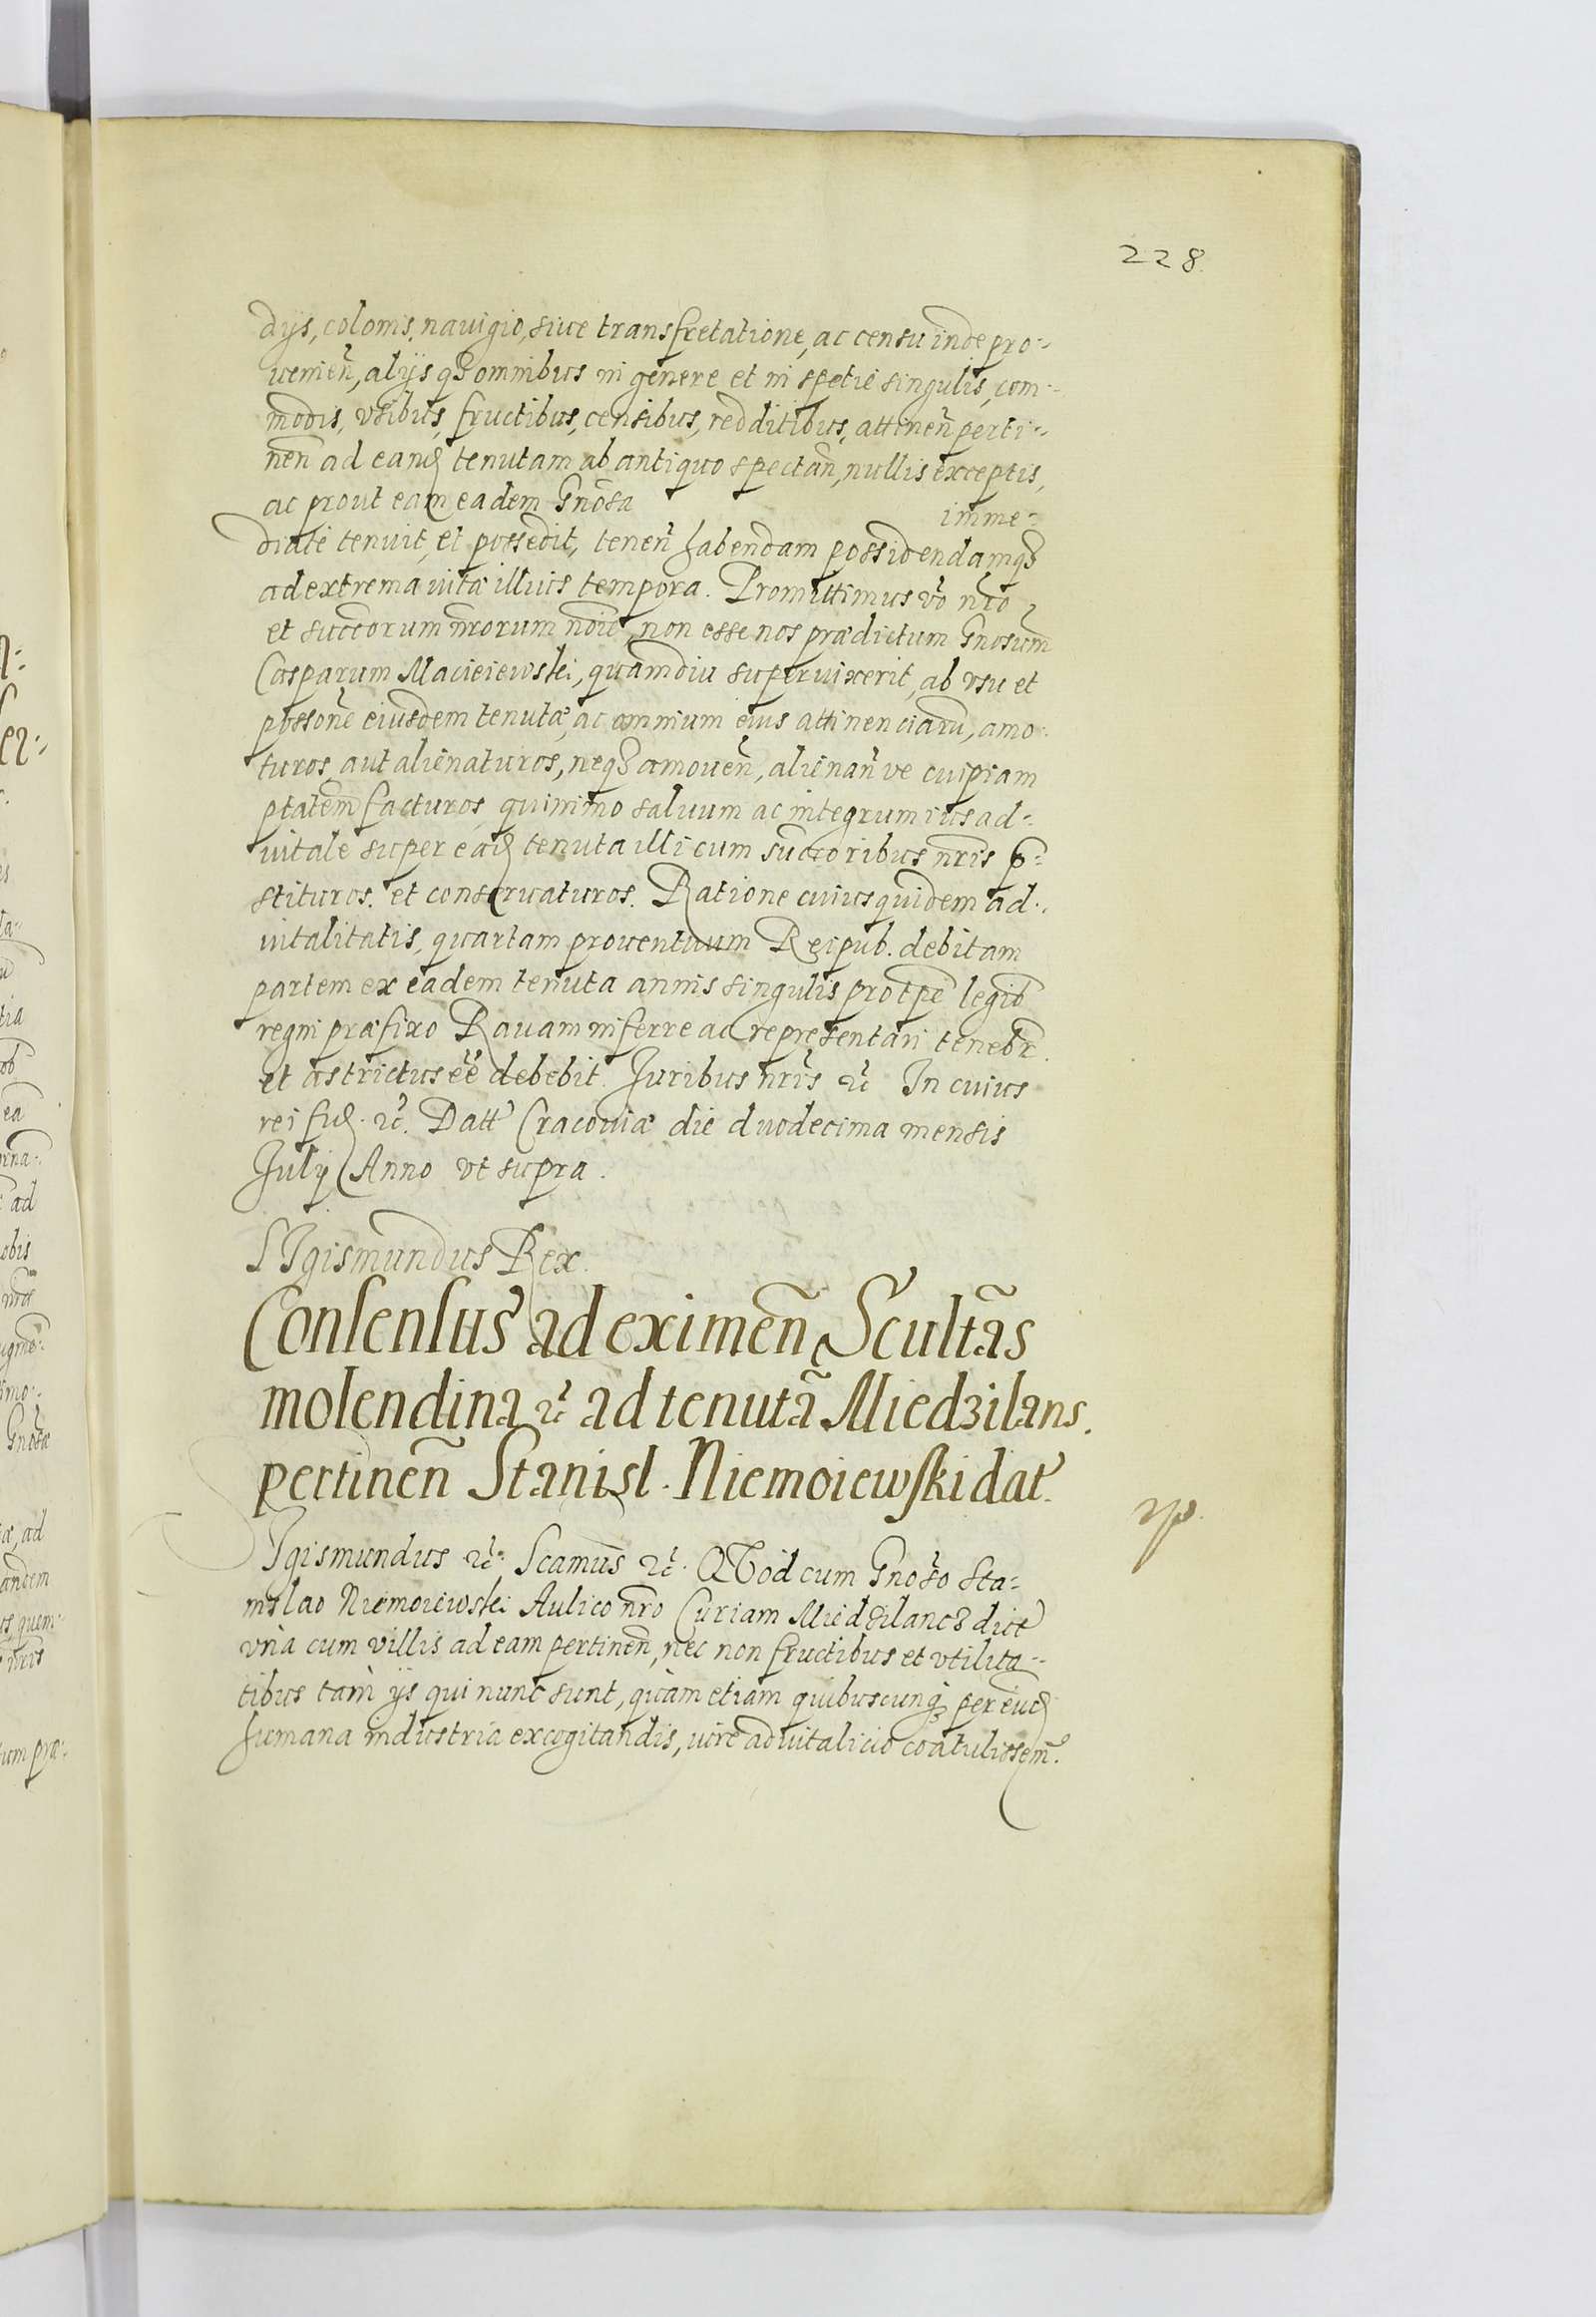 228.
dijs, colonis, nauigio, siue transfretatione, ac censu inde pro-
uenien̄, alijs qȝ omnibus in genere et in spetie singulis, com-
modis, vsibus, fructibus, censibus, redditibus, attinen̄ perti-
nen̄ ad eand tenutam ab antiquo spectan̄, nullis exceptis,
ac prout eam eadem Gnosa imme-
diate tenuit et possedit, tenen̄ habendam possidendamqȝ
ad extrema vitæ illius tempora. Promittimus vō nrō
et succorum nrorum noīe, non esse nos prædictum Gnosum
Casparum Macieiewski, quamdiu superuixerit, ab vsu et
possone eiusdem tenutæ, ac omnium eius attinenciarū, amo-
turos aut alienaturos, neqȝ amouen̄, alienan̄ ve cuipiam
ptatem facturos, quinimo saluum ac integrum ius ad-
uitale super ead tenuta illi cum succoribus nris p-
stituros et conseruaturos. Ratione cuius quidem ad-
uitalitatis, quartam prouentuum Reipub. debitam
partem ex eadem tenuta annis singulis pro tpe legib
regni præfixo Rauam inferre ac representari tenebr
et astrictus eē debebit. Juribus nris etc̄ In cuius
rei fid. etc̄. Datt Cracouiæ die duodecima mensis
Julij Anno vt supra.
SIgismundus Rex.
Consensus ad eximen̄ Scultās
molendina etc̄ ad tenutā Miedzilans.
pertinen̄ Stanisl. Niemoiewski dat.
SIgismundus etc̄. Scamus etc̄. QVod cum Gnoso Sta-
nislao Niemoiewski Aulico nrō Curiam Miedzilancȝ dict
vnà cum villis ad eam pertinen̄, nec non fructibus et vtilita-
tibus tàm ijs qui nunc sunt, quàm etiam quibuscunqȝ per eund
humana industria excogitandis, iure aduitalicio cōtulissem.